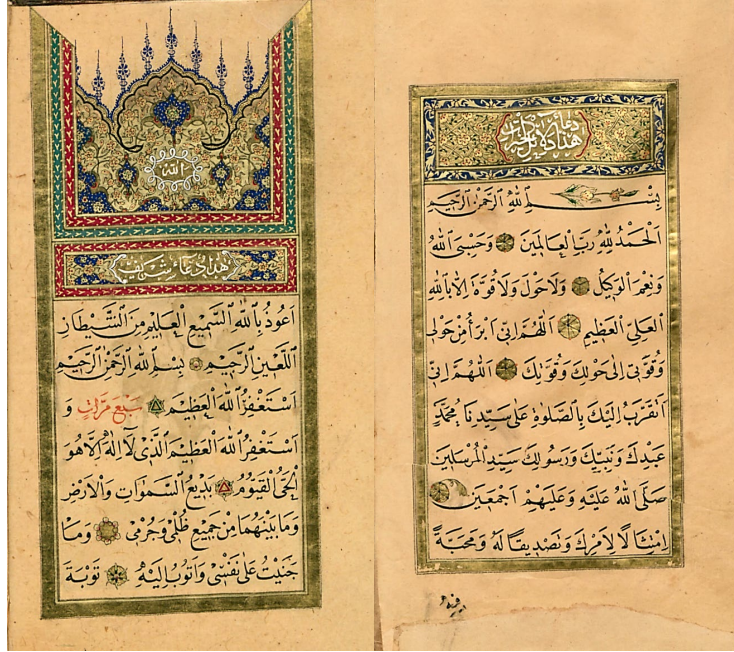 هذا دعاء
بِسْمِ ٱللّٰهِ ٱلرَّحْمٰنِ ٱلرَّحِيمِ
اَلْحَمْدُ لِلّٰهِ رَبِّ ٱلْعَالَمِينَ وَحَسْبِىَ ٱللّٰهُ
وَنِعْمَ ٱلْوَكِيلُ وَلَا حَوْلَ وَلَا قُوَّةَ اِلَّا بِاللّٰهِ
ٱلْعَلِىِّ ٱلْعَظِيمِ اَللّٰهُمَّ اِنِّى اَبْرَأُ مِنْ حَوْلِى
وَقُوَّتِى اِلٰى حَوْلِكَ وَقُوَّتِكَ اَللّٰهُمَّ اِنِّى
اَتَقَرَّبُ اِلَيْكَ بِالصَّلٰوةِ عَلٰى سَيِّدِنَا مُحَمَّدٍ
عَبْدِكَ وَنَبِيِّكَ وَرَسُولِكَ سَيِّدِ ٱلْمُرْسَلِينَ
صَلَّى ٱللّٰهُ عَلَيْهِ وَعَلَيْهِمْ اَجْمَعِينَ
اِمْتِثَالًا لِاَمْرِكَ وَتَصْدِيقًا لَهُ وَمَحَبَّةً
فيه
الله
هذا دعاء شريف
اَعُوذُ بِاللّٰهِ ٱلسَّمِيعِ ٱلْعَلِيمِ مِنَ ٱلشَّيْطَانِ
ٱللَّعِينِ ٱلرَّجِيمِ بِسْمِ ٱللّٰهِ ٱلرَّحْمٰنِ ٱلرَّحِيمِ
اَسْتَغْفِرُ ٱللّٰهَ ٱلْعَظِيمَ سَبْعَ مَرَّاتٍ وَ
اَسْتَغْفِرُ ٱللّٰهَ ٱلْعَظِيمَ ٱلَّذِى لَا اِلٰهَ اِلَّا هُوَ
ٱلْحَىُّ ٱلْقَيُّومُ بَدِيعُ ٱلسَّمٰوَاتِ وَٱلْاَرْضِ
وَمَا بَيْنَهُمَا مِنْ جَمِيعِ ظُلْمِى وَجُرْمِى وَمَا
جَنَيْتُ عَلٰى نَفْسِى وَاَتُوبُ اِلَيْهِ تَوْبَةَ